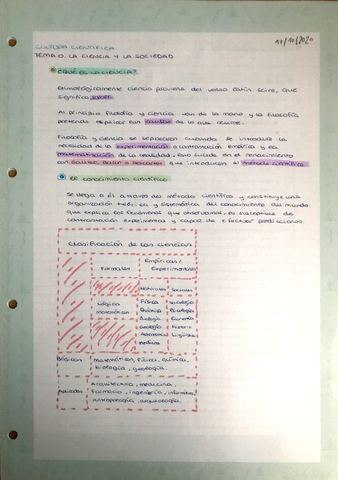 17/10/2020
CULTURA CIENTÍFICA
TEMA 0. LA CIENCIA Y LA SOCIEDAD
¿QUÉ ES LA CIENCIA?
Etimológicamente ciencia proviene del verbo latín scire, que
significa saber.
Al principio filosofía y ciencia iban de la mano y la filosofía
pretende explicar las causas de lo que ocurre.
Filosofía y ciencia se separaron cuando se introduce la
necesidad de la experimentación o contrastación empírica y la
matematización de la realidad, esto sucede en el renacimiento
con Galileo, Bacon o Descartes que introducen el método científico.
El conocimiento científico
Se llega a él a través del método científico y constituye una
organización teórica y sistemática del conocimiento del mundo
que explica los fenómenos que observamos, es susceptible de
contrastación experimental y capaz de efectuar predicciones.
Clasificación de las ciencias
Formales
Empíricas/
Experimentales
Naturales
Sociales
Lógica
Matemáticas
Física
Química
Biología
Geología
Astronomía
Medicina
Sociología
Psicología
Economía
Historia
Lingüística
Básicas
Matemáticas, física, química,
biología, geología.
Aplicadas
Arquitectura, medicina,
farmacia, ingeniería, informática,
antropología, arqueología.